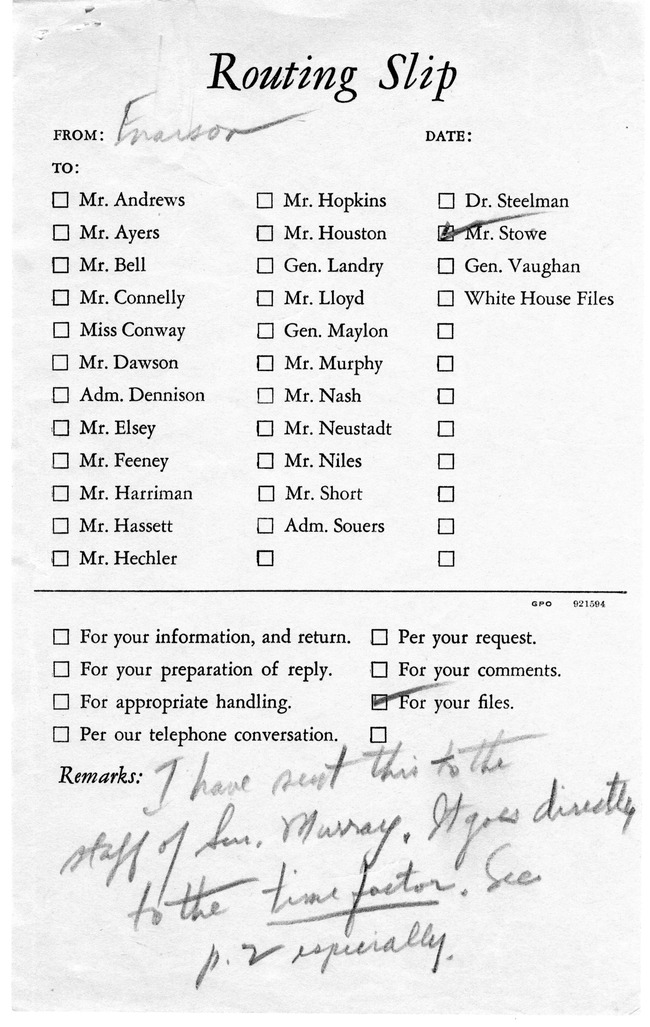 Routing Slip
FROM: Enarson DATE:
TO:
☐ Mr. Andrews ☐ Mr. Hopkins ☐ Dr. Steelman
☐ Mr. Ayers ☐ Mr. Houston ☑ Mr. Stowe
☐ Mr. Bell ☐ Gen. Landry ☐ Gen. Vaughan
☐ Mr. Connelly ☐ Mr. Lloyd ☐ White House Files
☐ Miss Conway ☐ Gen. Maylon ☐
☐ Mr. Dawson ☐ Mr. Murphy ☐
☐ Adm. Dennison ☐ Mr. Nash ☐
☐ Mr. Elsey ☐ Mr. Neustadt ☐
☐ Mr. Feeney ☐ Mr. Niles ☐
☐ Mr. Harriman ☐ Mr. Short ☐
☐ Mr. Hassett ☐ Adm. Souers ☐
☐ Mr. Hechler ☐ ☐
GPO 921594
☐ For your information, and return. ☐ Per your request.
☐ For your preparation of reply. ☐ For your comments.
☐ For appropriate handling. ☑ For your files.
☐ Per our telephone conversation. ☐
Remarks: I have sent this to the
staff of Sen. Murray. It goes directly
to the time factor. See
p. 2 especially.